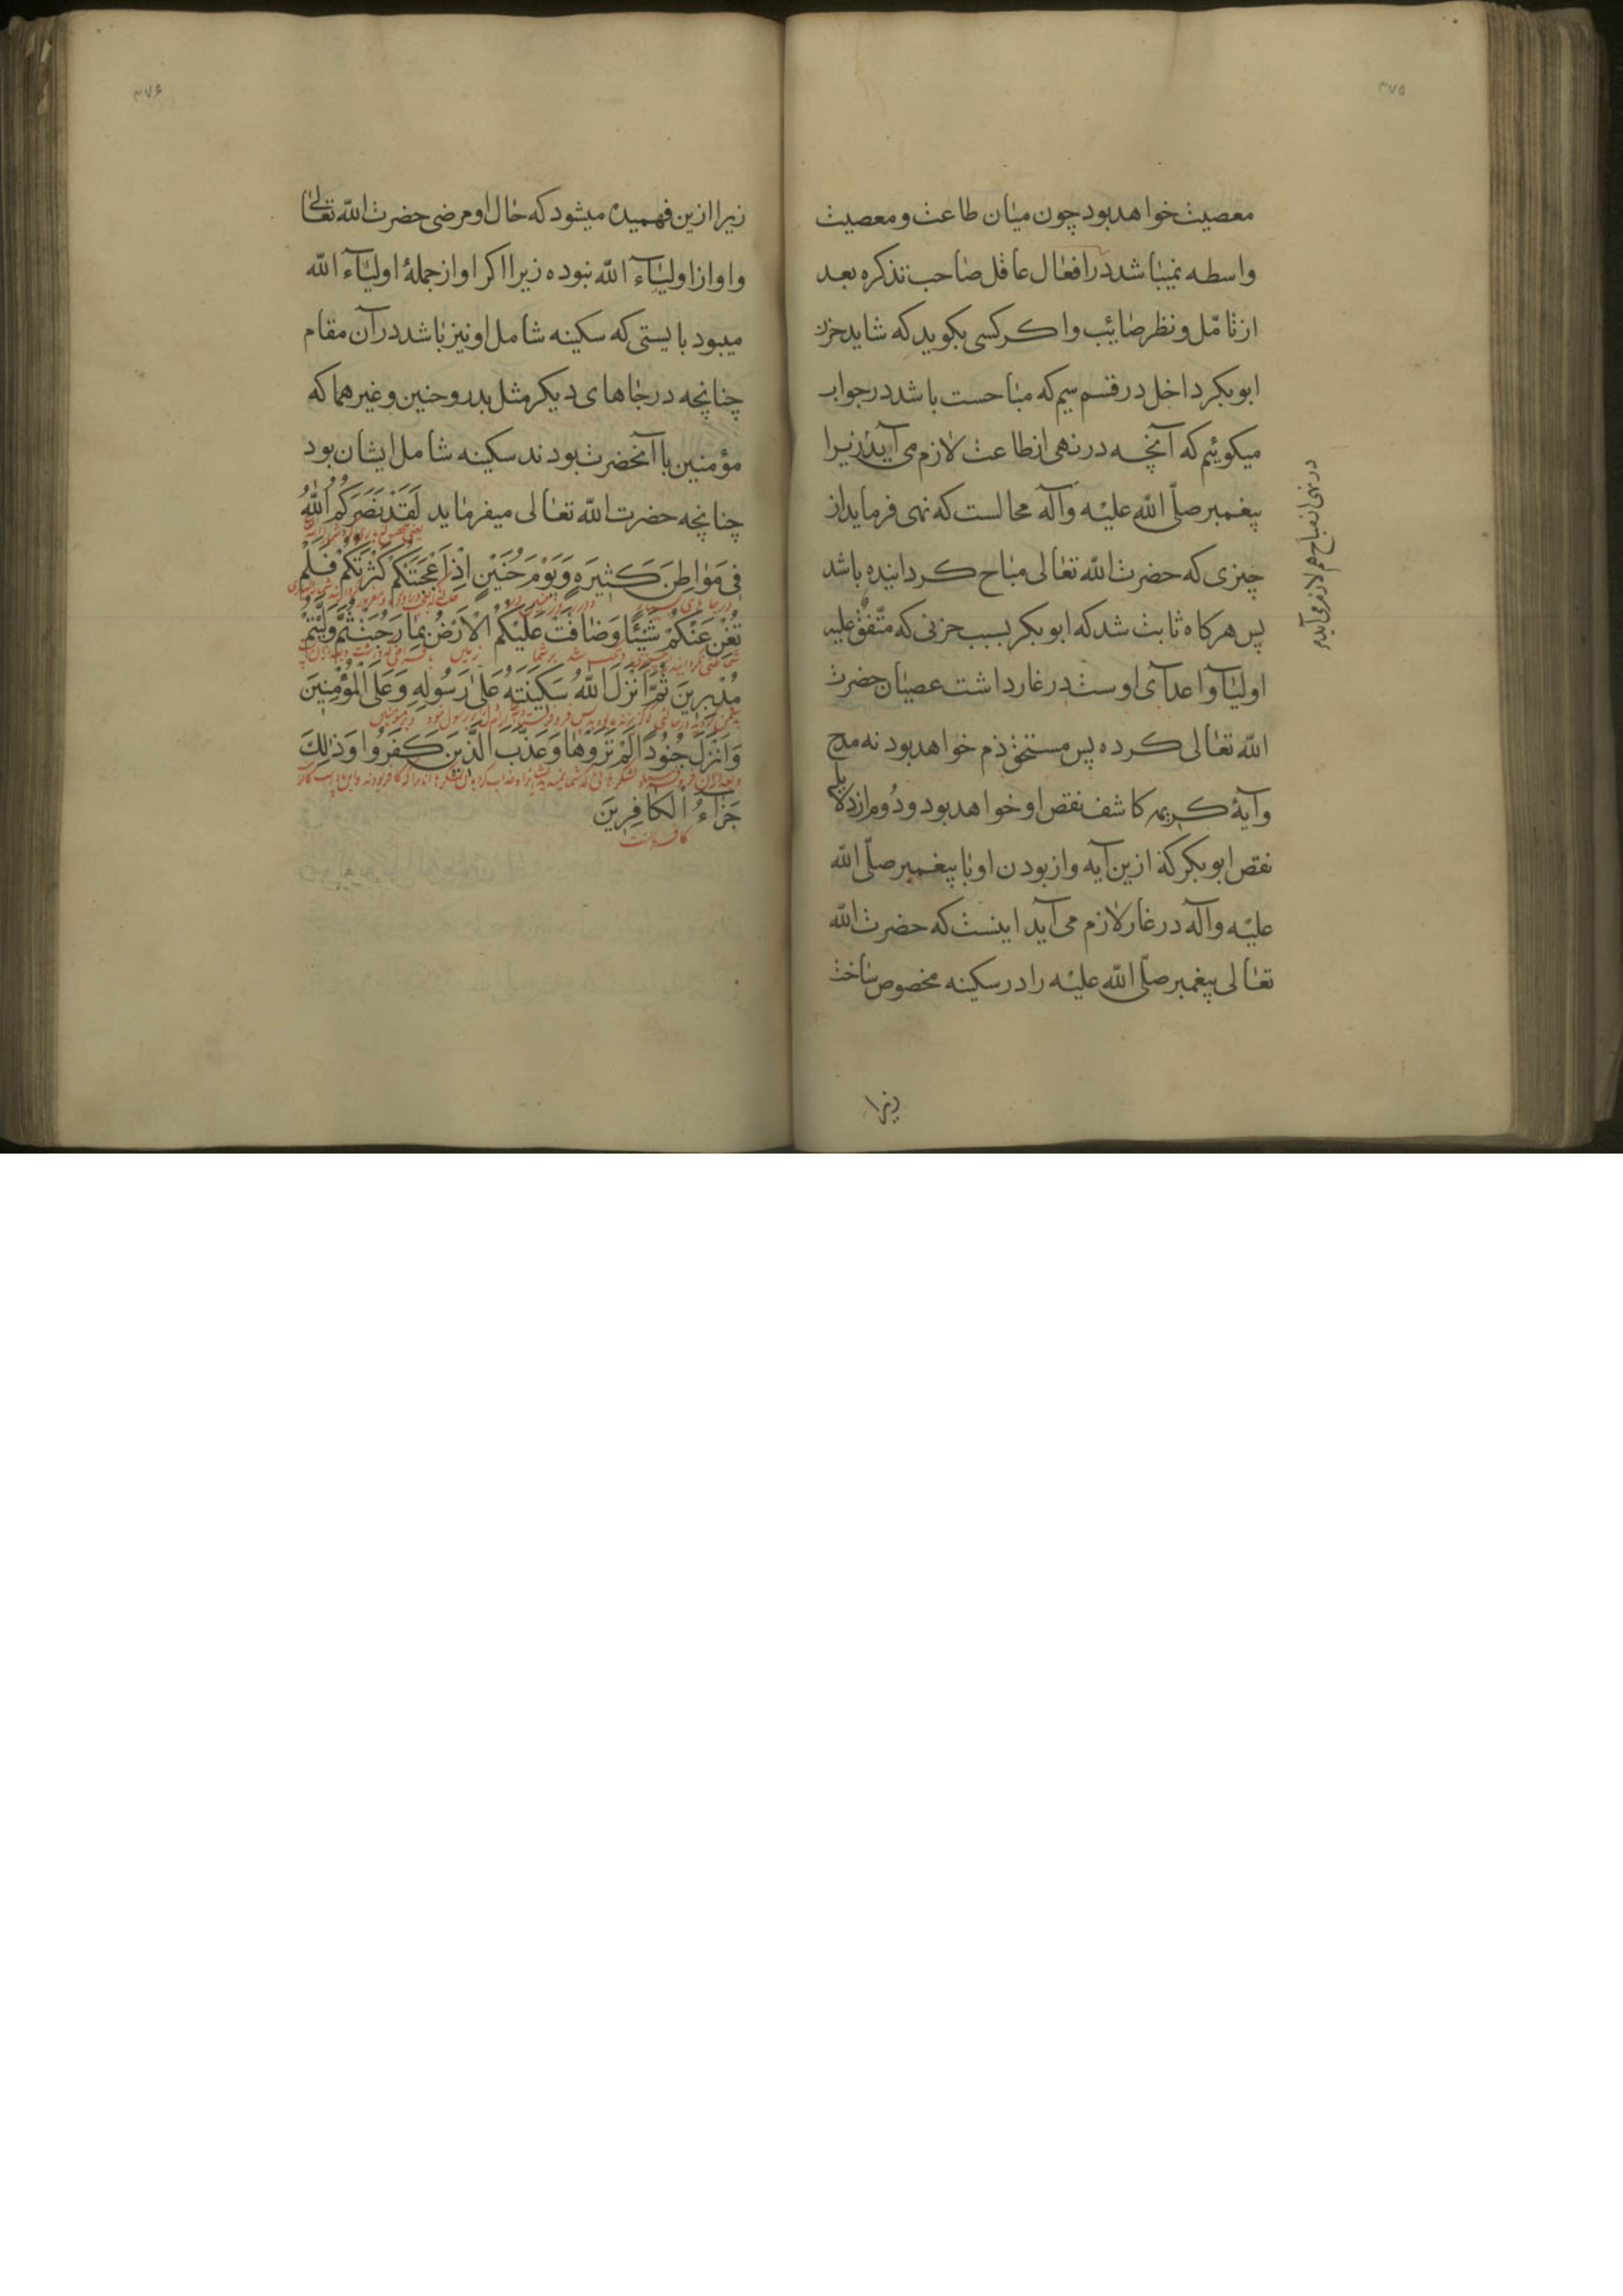 ٣٧٥
معصیت خواهد بود چون میان طاعت و معصیت
واسطه نمیباشد در افعال عاقل صاحب تذکره بعد
از تامّل و نظر صائب و اکر کسی بکوید که شاید حزن
ابوبکر داخل در قسم سیم که مباحست باشد در جواب
میکوئیم که آنچه در نهی از طاعت لازم می آید زیرا
پیغمبر صلّی الله علیه وآله محالست که نهی فرماید از
چیزی که حضرت الله تعالی مباح کردانیده باشد
پس هرکاه ثابت شد که ابوبکر بسبب حزنی که متّفق علیه
اولیا و اعدآی اوست در غار داشت عصیان حضرت
الله تعالی کرده پس مستحقّ ذم خواهد بود نه مدح
وآیهٔ کریمه کاشف نقص او خواهد بود و دُوم از دلایل
نقص ابوبکر که ازین آیه و از بودن او با پیغمبر صلّی الله
علیه وآله در غار لازم می آید اینست که حضرت الله
تعالی پیغمبر صلّی الله علیه را در سکینه مخصوص ساخت
زیرا
در نهی از مباح هم لازم می آید
٣٧۶
زیرا ازین فهمیده میشود که حال او مرضی حضرت الله تعالی
و او از اولیآء الله نبوده زیرا اکر او از جملهٔ اولیآء الله
میبود بایستی که سکینه شامل او نیز باشد در آن مقام
چنانچه در جاهای دیکر مثل بدر و حنین و غیرهما که
مؤمنین با آنحضرت بودند سکینه شامل ایشان بود
چنانچه حضرت الله تعالی میفرماید لَقَدْ نَصَرَکُمُ اللّٰهُ
فِی مَوٰاطِنَ کَثِیرَهٍ وَیَوْمَ حُنَیْنٍ اِذْ اَعْجَبَتْکُمْ کَثْرَتُکُمْ فَلَمْ
در جاهای بسیار
تُغْنِ عَنْکُمْ شَیْئًا وَضٰاقَتْ عَلَیْکُمُ الْاَرْضُ بِمٰا رَحُبَتْ ثُمَّ وَلَّیْتُمْ
مُدْبِرِینَ ثُمَّ اَنْزَلَ اللّٰهُ سَکِینَتَهُ عَلیٰ رَسُولِهِ وَعَلَی الْمُؤْمِنِینَ
وَاَنْزَلَ جُنُودًا لَمْ تَرَوْهٰا وَعَذَّبَ الَّذِینَ کَفَرُوا وَذٰلِکَ
جَزٰٓاءُ الْکٰافِرِینَ
کافرانست